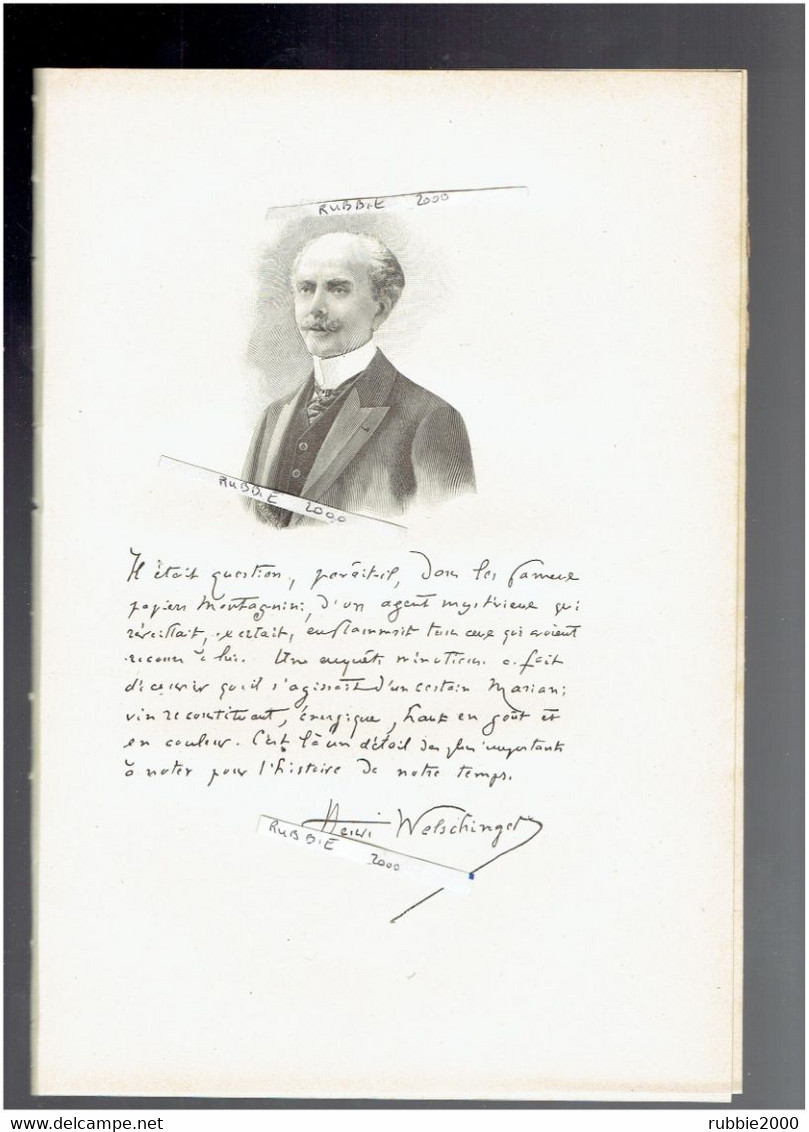 RUBBiE 2000
RUBBiE 2000
Il était question, paraît-il, dans les fameux
papiers Montagnini, d'un agent mystérieux qui
réveillait, excitait, enflammait tous ceux qui avaient
recours à lui. Une enquête minutieuse a fait
découvrir qu'il s'agissait d'un certain Mariani
vin reconstituant, énergique, haut en goût et
en couleur. C'est là un détail des plus importants
à noter pour l'histoire de notre temps.
Henri Welschinger
RUBBiE 2000
delcampe.net
rubbie2000